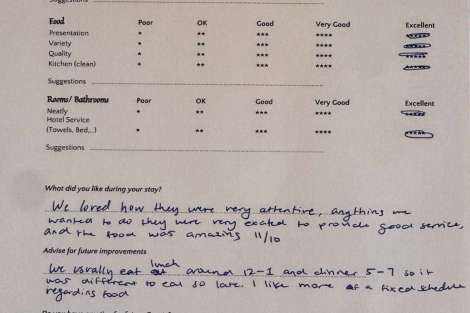 Suggestions
Food Poor OK Good Very Good Excellent
Presentation * ** *** **** *****
Variety * ** *** **** *****
Quality * ** *** **** *****
Kitchen (clean) * ** *** **** *****
Suggestions
Rooms/ Bathrooms Poor OK Good Very Good Excellent
Neatly * ** *** **** *****
Hotel Service
(Towels, Bed,..) * ** *** **** *****
Suggestions
What did you like during your stay?
We loved how they were very attentive, anything we
wanted to do they were very excited to provide good service,
and the food was amazing 11/10
Advise for future improvements
We usually eat lunch around 12-1 and dinner 5-7 so it
was different to eat so late. I like more of a fixed schedule
regarding food